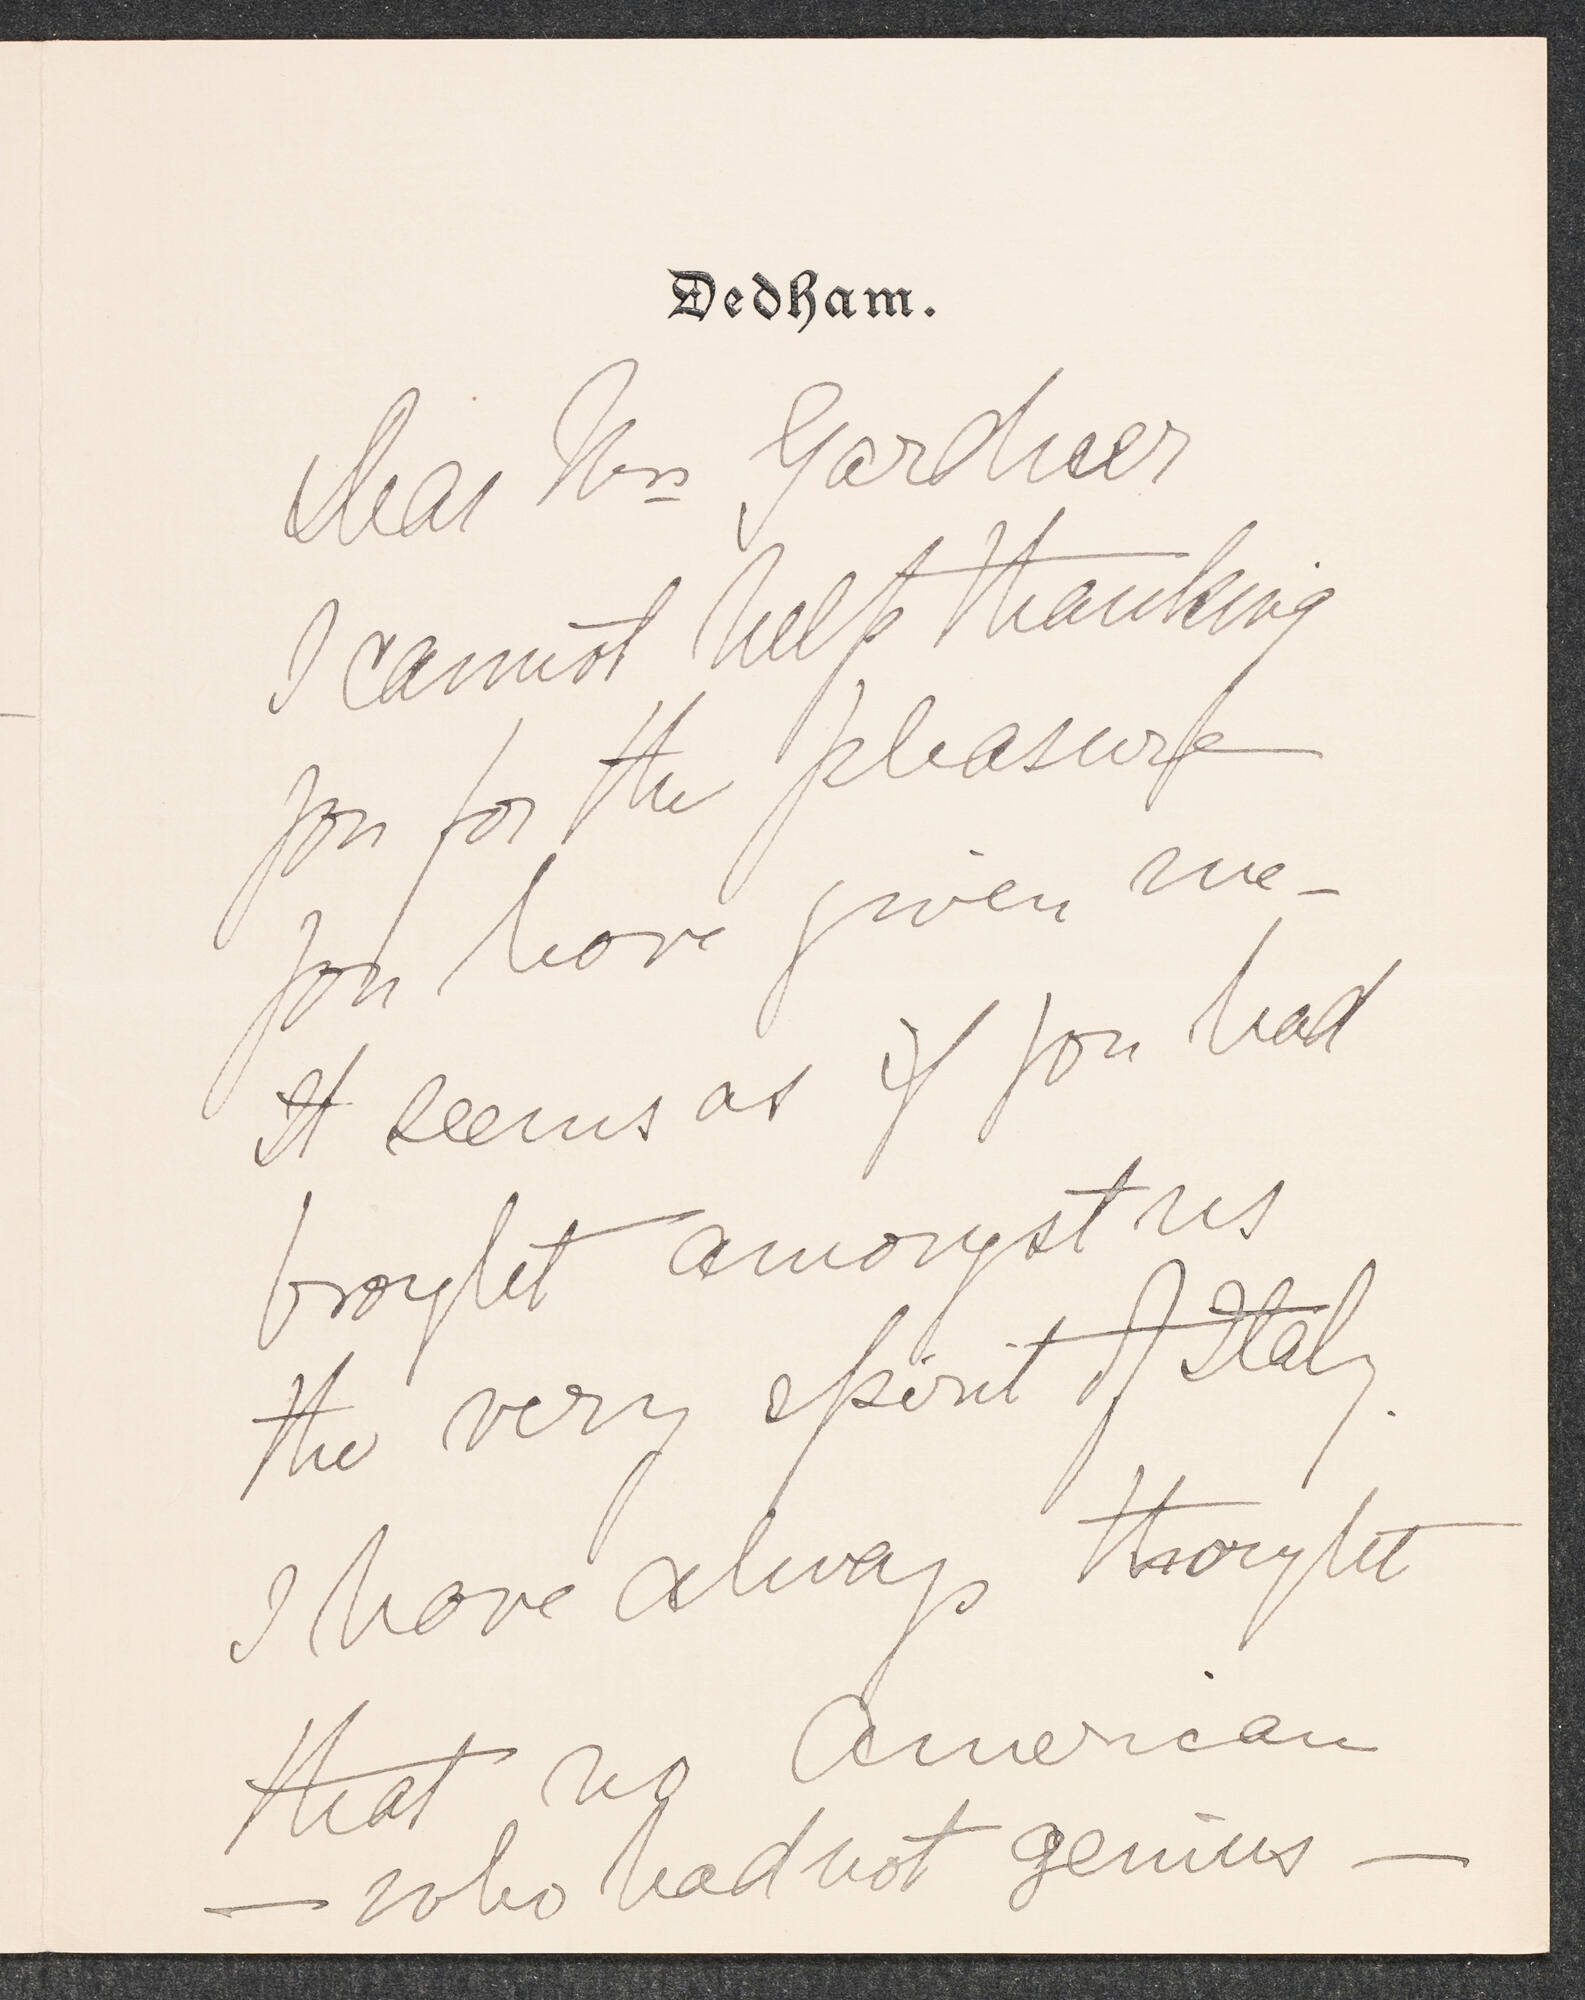 Dedham.
Dear Mrs Gardner
I cannot help thanking
you for the pleasure
you have given me –
It seems as if you had
brought amongst us
the very spirit of Italy.
I have always thought
that no American
– who had not genius –